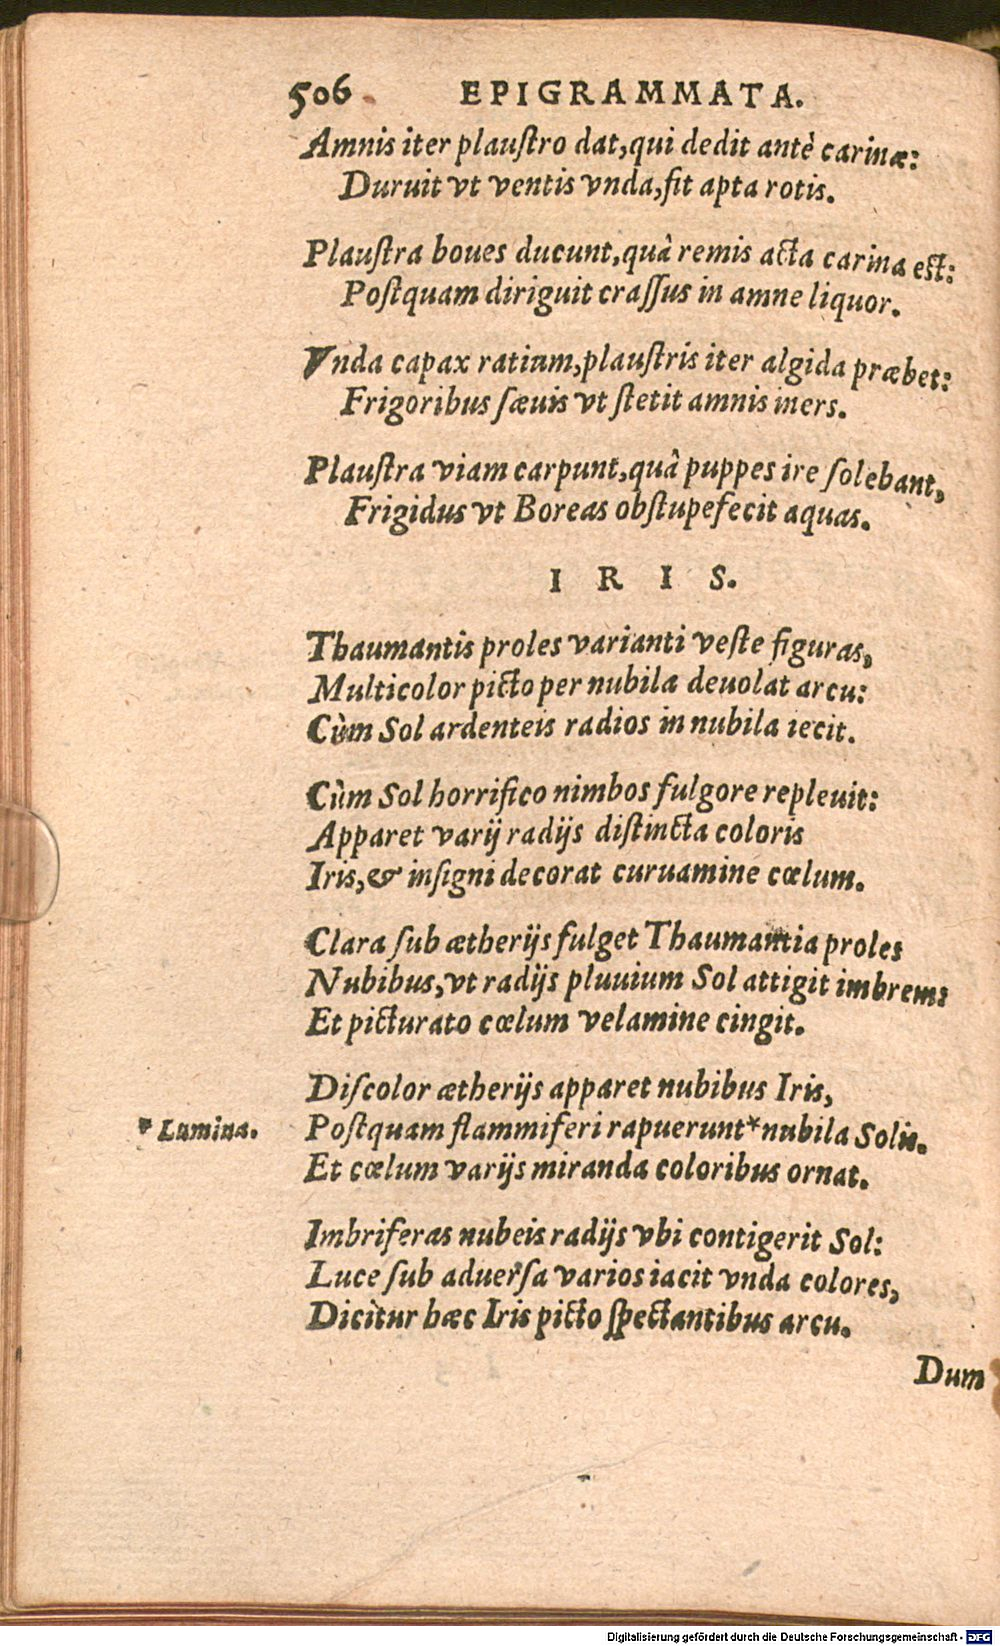 506 EPIGRAMMATA.
Amnis iter plauſtro dat,qui dedit antè carinæ:
Duruit vt ventis vnda,fit apta rotis.
Plauſtra boues ducunt,quâ remis acta carina eſt:
Poſtquam diriguit craſſus in amne liquor.
Vnda capax ratium,plauſtris iter algida præbet:
Frigoribus ſæuis vt ſtetit amnis iners.
Plauſtra viam carpunt,quâ puppes ire ſolebant,
Frigidus vt Boreas obſtupefecit aquas.
I R I S.
Thaumantis proles varianti veſte figuras,
Multicolor picto per nubila deuolat arcu:
Cùm Sol ardenteis radios in nubila iecit.
Cùm Sol horrifico nimbos fulgore repleuit:
Apparet varij radijs diſtincta coloris
Iris,& inſigni decorat curuamine cœlum.
Clara ſub ætherijs fulget Thaumantia proles
Nubibus,vt radijs pluuium Sol attigit imbrem:
Et picturato cœlum velamine cingit.
Diſcolor ætherijs apparet nubibus Iris,
* Lumina. Poſtquam flammiferi rapuerunt*nubila Solis.
Et cœlum varijs miranda coloribus ornat.
Imbriferas nubeis radijs vbi contigerit Sol:
Luce ſub aduerſa varios iacit vnda colores,
Dicitur hæc Iris picto ſpectantibus arcu.
Dum
Digitalisierung gefördert durch die Deutsche Forschungsgemeinschaft - DFG